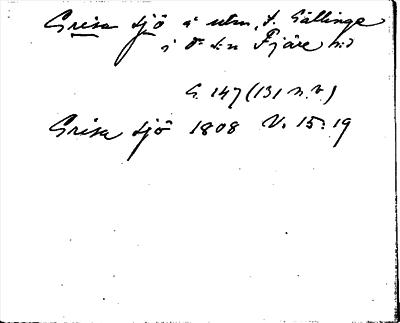 Grisa sjö å utm. t. Gällinge
i d:o s:n Fjäre h:d
G. 147 (131 n.v.)
Grisa sjö 1808 V. 15:19